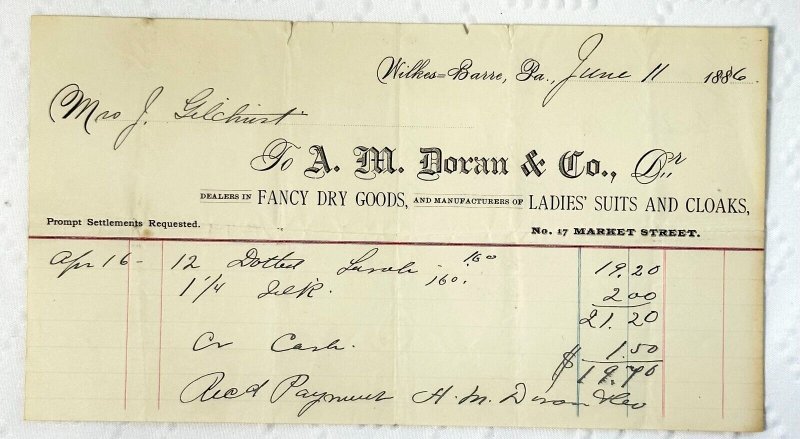 Wilkes=Barre, Pa., June 11 1886.
Mrs J. Gilchrist
To A. M. Doran & Co., Dr
DEALERS IN FANCY DRY GOODS, AND MANUFACTURERS OF LADIES' SUITS AND CLOAKS,
Prompt Settlements Requested. No. 17 MARKET STREET.
Apr 16 - 12 Dotted Surah 160 19.20
1 1/4 Silk. 160. 2 00
21.20
Cr Cash. 1.50
$ 19.70
Rec'd Payment A. M. Doran & Co